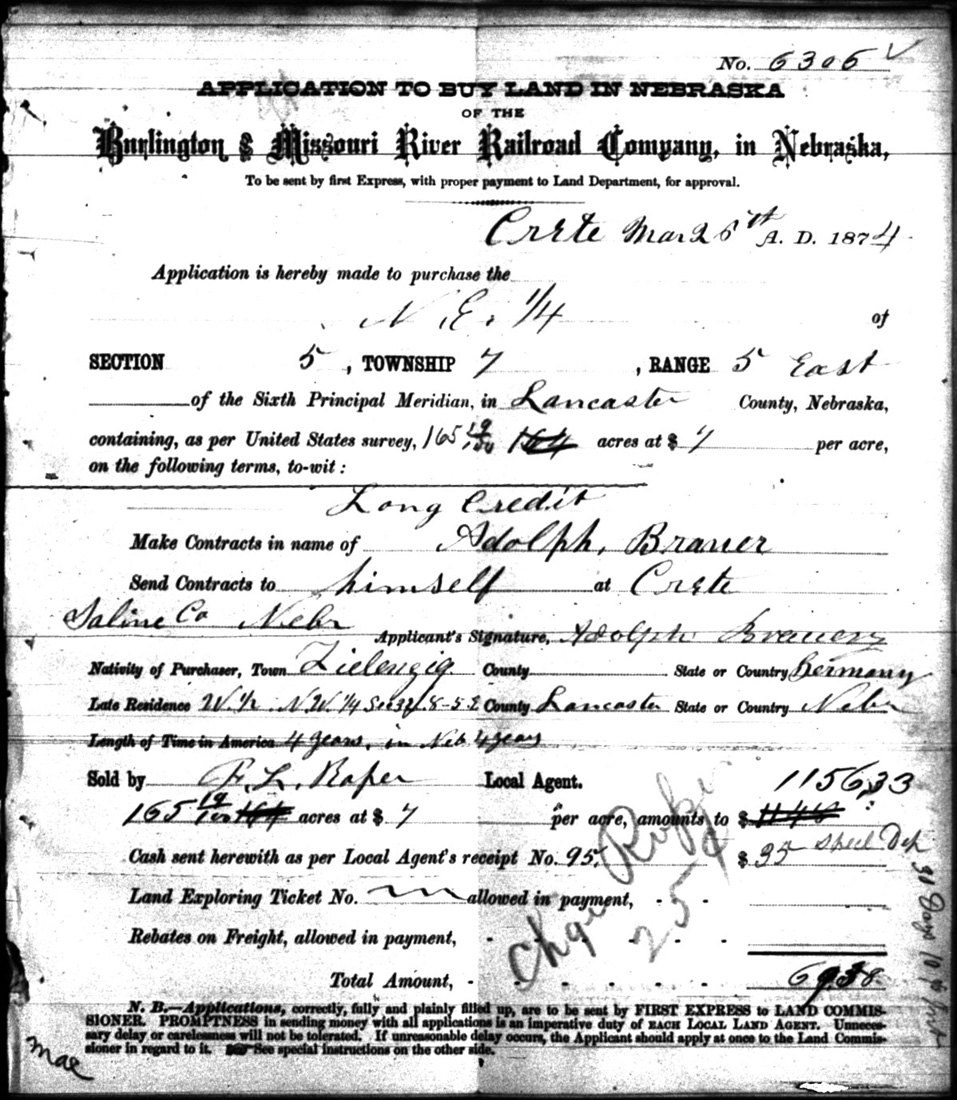 No. 6306 ✓
APPLICATION TO BUY LAND IN NEBRASKA
OF THE
Burlington & Missouri River Railroad Company, in Nebraska,
To be sent by first Express, with proper payment to Land Department, for approval.
Crete Mar 26th A. D. 1874.
Application is hereby made to purchase the
N. E. 1/4 of
SECTION 5, TOWNSHIP 7, RANGE 5 East
of the Sixth Principal Meridian, in Lancaster County, Nebraska,
containing, as per United States survey, 165 19/100 164 acres at $ 7 per acre,
on the following terms, to-wit:
Long Credit
Make Contracts in name of Adolph, Brauer
Send Contracts to himself at Crete
Saline Co Nebr
Applicant's Signature, Adolph Brauer
Nativity of Purchaser, Town Zielenzig County State or Country Germany
Late Residence W 1/2 N W 1/4 Sec 32 8-5 E County Lancaster State or Country Nebr
Length of Time in America 4 years, in Neb 4 years
Sold by F. L. Roper Local Agent. 1156,33
165 19/100 164 acres at $ 7 per acre, amounts to $ 1148
Cash sent herewith as per Local Agent's receipt No. 95. $ 35 Specl Dep
Land Exploring Ticket No. allowed in payment,
Rebates on Freight, allowed in payment,
Total Amount,
N. B.—Applications, correctly, fully and plainly filled up, are to be sent by FIRST EXPRESS to LAND COMMIS-
SIONER. PROMPTNESS in sending money with all applications is an imperative duty of EACH LOCAL LAND AGENT. Unneces-
sary delay or carelessness will not be tolerated. If unreasonable delay occurs, the Applicant should apply at once to the Land Commis-
sioner in regard to it. See special instructions on the other side.